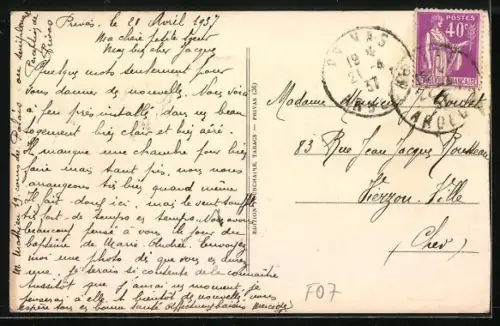 Privas, le 20 Avril 1937
Ma chère petite Sœur
Mon bien cher Jacques
Quelques mots seulement pour
vous donner de nouvelles. Nous voici
à peu près installés dans un beau
logement bien clair et bien aéré.
Il manque une chambre pour bien
faire mais tant pis, nous nous
arrangeons très bien quand même
Il fait donc ici, mais le vent souffle
très fort de temps en temps. Nous avons
beaucoup pensé à vous le jour du
baptême de Marie. Envoyez
moi une photo dès que vous en aurez
une. Je serais si contente de la connaître
Aussitôt que j'aurai un moment je
penserai à elle. A bientôt de nouvelles, vous
êtes tous en bonne santé. Affectueux baisers
M. Mathieu 19 cours du Palais
Privas
EDITION DUCHAINE, TABACS — PRIVAS
PRIVAS
19 H
21 -4
37
ARDECHE
POSTES
40c
REPUBLIQUE FRANÇAISE
Madame Monsieur
83 Rue Jean Jacques Rousseau
Vierzon-Ville
(Cher)
F07